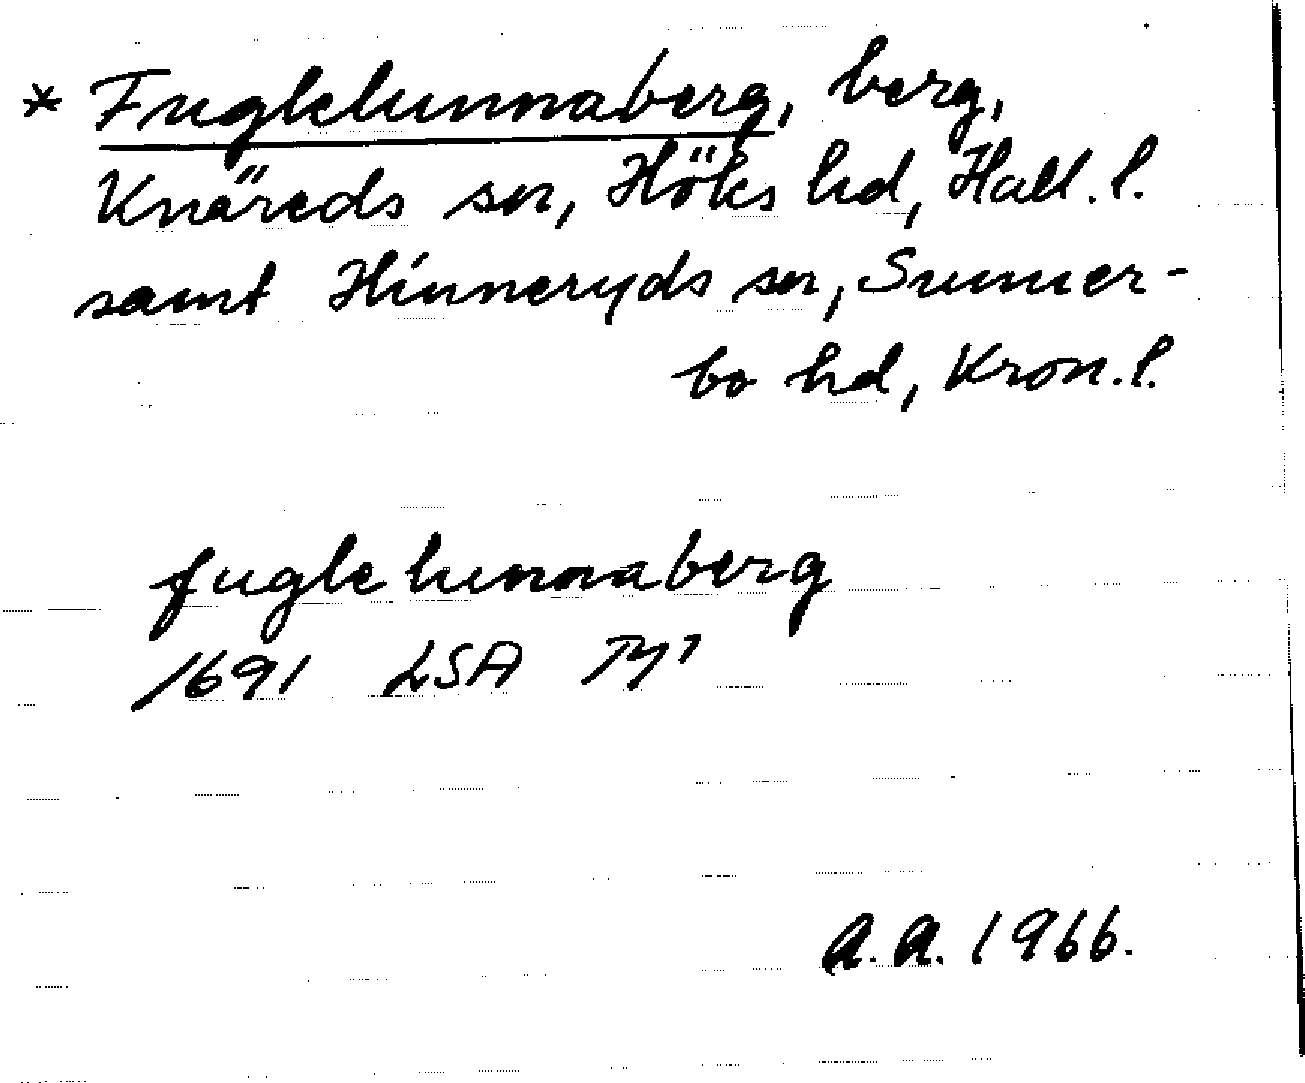 * Fuglelunnaberg, berg,
Knäreds sn, Höks hd, Hall. l.
samt Hinneryds sn, Sunner-
bo hd, Kron. l.
fugle lunnaberg
1691 LSA
A. A. 1966.